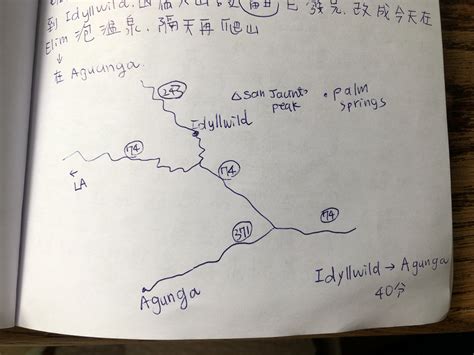 到 Idyllwild,
已發見,改成今天在
Elim 泡溫泉,隔天再爬山
↓
在 Aguanga.
243
△ San Jaunto
peak
• palm
springs
Idyllwild
74
← LA
74
371
74
Agunga
Idyllwild → Agunga
40分